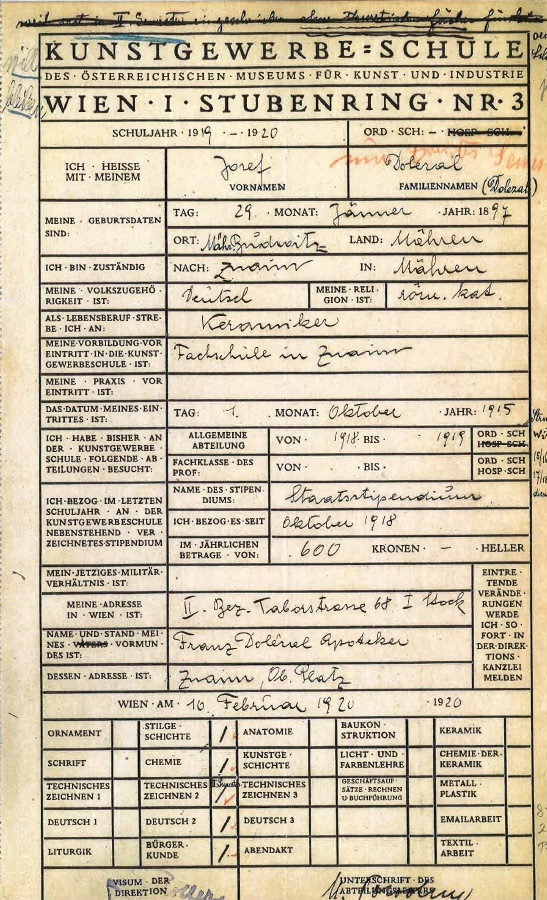 KUNSTGEWERBE=SCHULE
DES · ÖSTERREICHISCHEN · MUSEUMS · FÜR · KUNST · UND · INDUSTRIE
WIEN · I · STUBENRING · NR · 3
SCHULJAHR · 1919 · – · 1920 ORD · SCH: – · HOSP · SCH:
ICH · HEISSE MIT · MEINEM Josef VORNAMEN Doležal FAMILIENNAMEN (Dolezal)
MEINE · GEBURTSDATEN SIND: TAG: 29. MONAT: Jänner JAHR: 1897
ORT: Mähr. Budwitz LAND: Mähren
ICH · BIN · ZUSTÄNDIG NACH: Znaim IN: Mähren
MEINE · VOLKSZUGEHÖ · RIGKEIT · IST: Deutsch MEINE · RELI · GION · IST: röm. kat.
ALS · LEBENSBERUF · STRE · BE · ICH · AN: Keramiker
MEINE · VORBILDUNG · VOR EINTRITT · IN · DIE · KUNST · GEWERBESCHULE · IST: Fachschule in Znaim
MEINE · PRAXIS · VOR EINTRITT · IST:
DAS · DATUM · MEINES · EIN · TRITTES · IST: TAG: 1. MONAT: Oktober JAHR: 1915
ICH · HABE · BISHER · AN DER · KUNSTGEWERBE · SCHULE · FOLGENDE · AB · TEILUNGEN · BESUCHT: ALLGEMEINE ABTEILUNG VON · 1918 · BIS · 1919 ORD · SCH HOSP · SCH
FACHKLASSE · DES PROF: VON · · BIS · ORD · SCH HOSP · SCH
ICH · BEZOG · IM · LETZTEN SCHULJAHR · AN · DER KUNSTGEWERBESCHULE NEBENSTEHEND · VER · ZEICHNETES · STIPENDIUM NAME · DES · STIPEN · DIUMS: Staatsstipendium
ICH · BEZOG · ES · SEIT Oktober 1918
IM · JÄHRLICHEN BETRAGE · VON: 600 KRONEN · – · HELLER
MEIN · JETZIGES · MILITÄR · VERHÄLTNIS · IST:
EINTRE · TENDE VERÄNDE · RUNGEN WERDE ICH · SO · FORT · IN DER · DIREK · TIONS · KANZLEI MELDEN
MEINE · ADRESSE IN · WIEN · IST: II. Bez. Taborstrasse 68 I Stock
NAME · UND · STAND · MEI · NES · VATERS · VORMUN · DES · IST: Franz Doležal Apoteker
DESSEN · ADRESSE · IST: Znaim, Ob. Platz
WIEN · AM · 10. Februar 1920 · 1920
ORNAMENT STILGE · SCHICHTE / ANATOMIE BAUKON · STRUKTION KERAMIK
SCHRIFT CHEMIE / KUNSTGE · SCHICHTE LICHT · UND · FARBENLEHRE CHEMIE · DER · KERAMIK
TECHNISCHES ZEICHNEN 1 TECHNISCHES ZEICHNEN 2 / TECHNISCHES ZEICHNEN 3 GESCHÄFTSAUF · SÄTZE · RECHNEN U · BUCHFÜHRUNG METALL · PLASTIK
DEUTSCH 1 DEUTSCH 2 / DEUTSCH 3 EMAILARBEIT
LITURGIK BÜRGER · KUNDE / ABENDAKT TEXTIL · ARBEIT
VISUM · DER DIREKTION UNTERSCHRIFT · DES ABTEILUNGSLEITERS